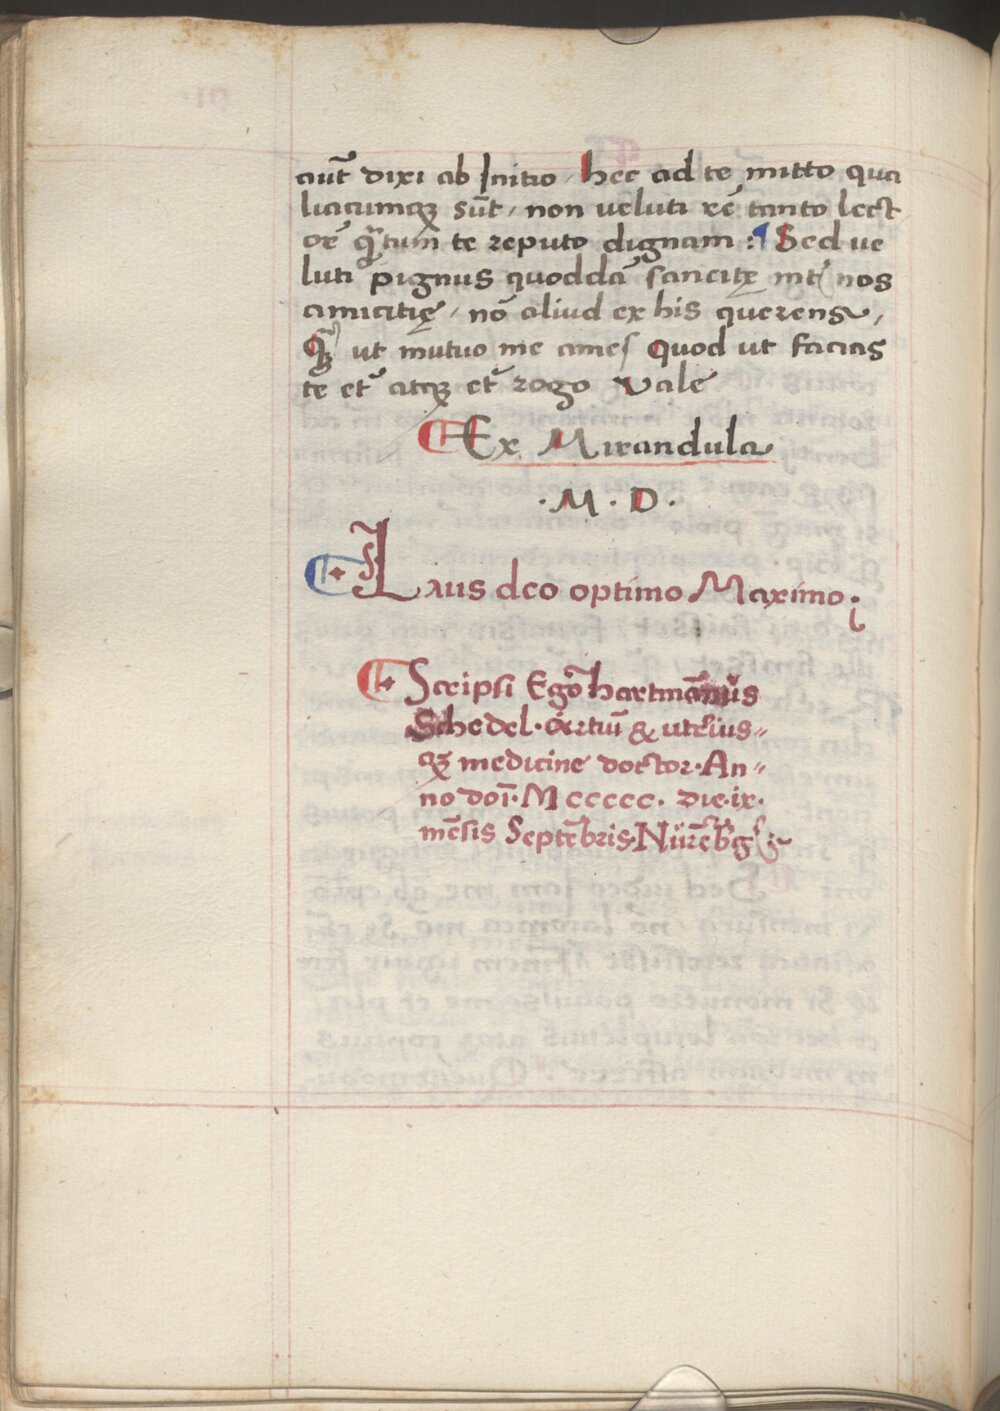 aut̃ dixi ab Initio / hec ad te mitto qua
liacumqꝫ sũt / non veluti rẽ tanto lect
orẽ qᷓtum te reputo dignam : ¶ Sed ve
luti pignus quoddã sancitę int nos
amicitię / nõ aliud ex his querens /
Qᷓꝫ ut mutuo me ames Quod ut facias
te et̃ atqꝫ et̃ rogo Vale
¶ Ex Mirandula
· M · D ·
¶ Laus deo optimo Maximo ·
¶ Scripsi Ego hartmãnus
Schedel · artiũ & utrius⸗
qꝫ medicine doctor · An⸗
no doĩ · M ccccc · Die · ix ·
mẽsis Septẽbris · Nürẽbg